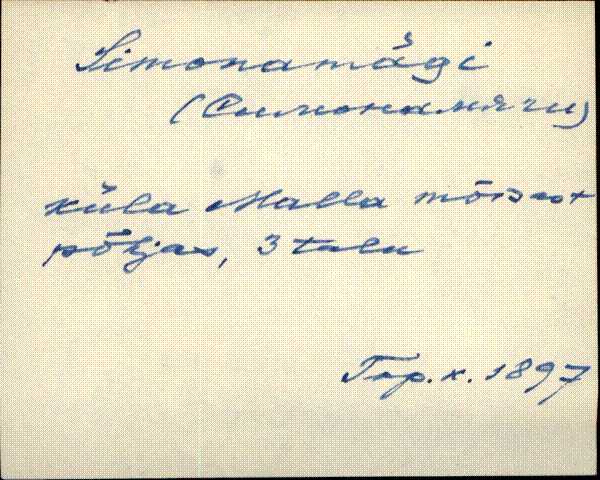 Simonamägi
(Симонамяги)
küla Malla mõisast
põhjas, 3 talu
Top. k. 1897